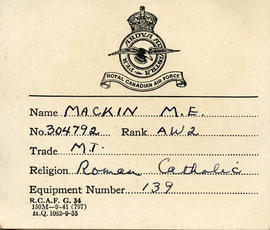 PER ARDUA AD ASTRA
ROYAL CANADIAN AIR FORCE
Name MACKIN M.E.
No. 304792 Rank AW2
Trade M.T.
Religion Roman Catholic
Equipment Number 139
R.C.A.F. G. 34
150M—9-41 (797)
H.Q. 1062-9-35